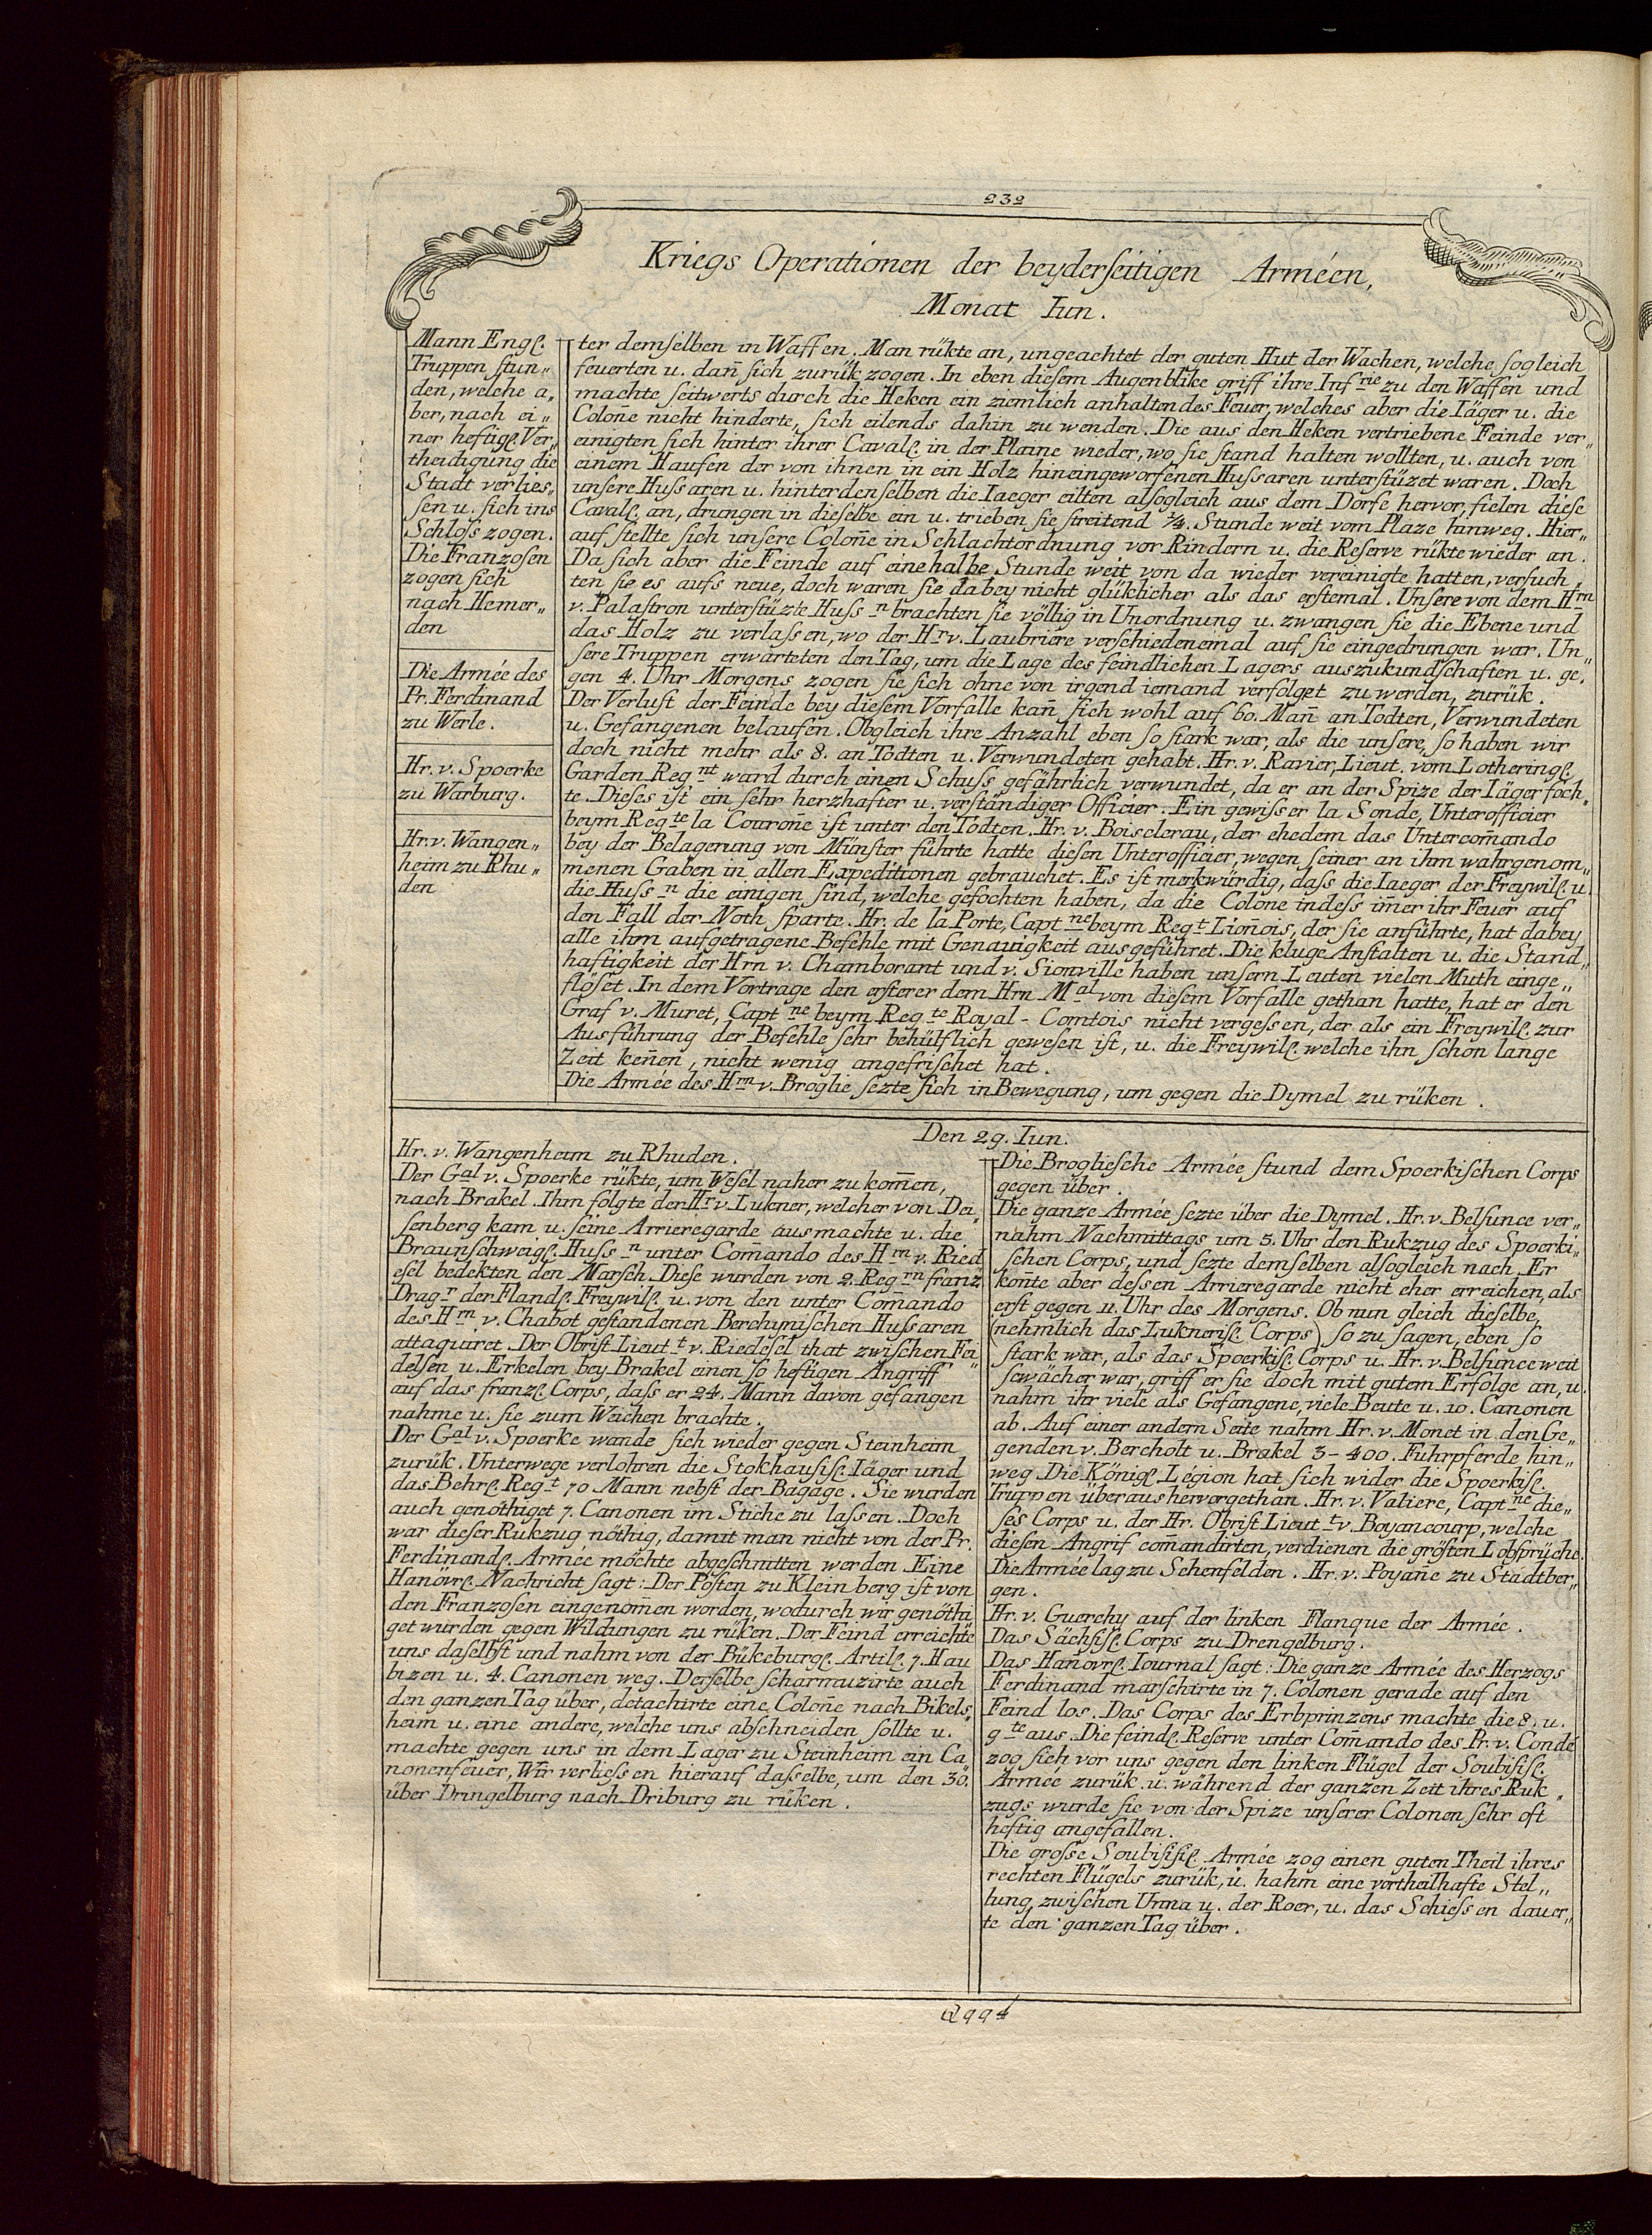 232
Kriegs Operationen der beyderſeitigen Arméen,
Monat Iun.
Mann Engl.
Truppen ſtun„
den, welche a„
ber, nach ei„
ner heftigl. Ver„
theidigung die
Stadt verlieſ„
ſen u. ſich ins
Schloſs zogen.
Die Franzoſen
zogen ſich
nach Hemer„
den
Die Armée des
Pr. Ferdinand
zu Werle.
Hr. v. Spoerke
zu Warburg.
Hr. v. Wangen„
heim zu Rhu„
den
ter demſelben in Waffen. Man rükte an, ungeachtet der guten Hut der Wachen, welche ſogleich
feuerten u. dan̄ ſich zurük zogen. In eben dieſem Augenblike griff ihre Inf rie zu den Waffen und
machte ſeitwerts durch die Heken ein ziemlich anhaltendes Feuer, welches aber die Iäger u. die
Colon̄e nicht hinderte, ſich eilends dahin zu wenden. Die aus den Heken vertriebene Feinde ver„
einigten ſich hinter ihrer Cavall. in der Plaine wieder, wo ſie ſtand halten wollten, u. auch von
einem Haufen der von ihnen in ein Holz hineingeworfenen Huſsaren unterſtüzet waren. Doch
unſere Huſsaren u. hinter denſelben die Iaeger eilten alſogleich aus dem Dorfe hervor, fielen dieſe
Cavall. an, drungen in dieſelbe ein u. trieben ſie ſtreitend ¾. Stunde weit vom Plaze hinweg. Hier„
auf ſtellte ſich unſere Colon̄e in Schlachtordnung vor Rindern u. die Reſerve rükte wieder an.
Da ſich aber die Feinde auf eine halbe Stunde weit von da wieder vereinigte hatten, verſuch„
ten ſie es aufs neue, doch waren ſie dabey nicht glüklicher als das erſtemal. Unſere von dem Hrn
v. Palaſtron unterſtüzte Huſs n brachten ſie völlig in Unordnung u. zwangen ſie die Ebene und
das Holz zu verlaſsen, wo der Hr v. Laubriere verſchiedenemal auf ſie eingedrungen war. Un„
ſere Truppen erwarteten den Tag, um die Lage des feindlichen Lagers auszukundſchaften u. ge„
gen 4. Uhr Morgens zogen ſie ſich ohne von irgend iemand verfolget zu werden, zurük.
Der Verluſt der Feinde bey dieſem Vorfalle kan̄ ſich wohl auf 60. Man̄ an Todten, Verwundeten
u. Gefangenen belaufen. Obgleich ihre Anzahl eben ſo ſtark war, als die unſere, ſo haben wir
doch nicht mehr als 8. an Todten u. Verwundeten gehabt. Hr. v. Ravier, Lieut. vom Lotheringl.
Garden Reg nt ward durch einen Schuſs gefährlich verwundet, da er an der Spize der Iäger foch„
te. Dieſes iſt ein ſehr herzhafter u. verſtändiger Officier. Ein gewiſser la Sonde, Unterofficier
beym Reg te la Couron̄e iſt unter den Todten. Hr. v. Boisclerau, der ehedem das Untercom̄ando
bey der Belagerung von Münſter führte hatte dieſen Unterofficier, wegen ſeiner an ihm wahrgenom„
menen Gaben in allen Expeditionen gebrauchet. Es iſt merkwürdig, daſs die Iaeger der Freywill. u.
die Huſs n die einigen ſind, welche gefochten haben, da die Colone indeſs im̄er ihr Feuer auf
den Fall der Noth ſparte. Hr. de la Porte, Capt ne beym Reg t Lion̄ois, der ſie anführte, hat dabey
alle ihm aufgetragene Befehle mit Genauigkeit ausgeführet. Die kluge Anſtalten u. die Stand„
haftigkeit der Hrn v. Chamborant und v. Sionville haben unſern Leuten vielen Muth einge„
flöſet. In dem Vortrage den erſterer dem Hrn M al von dieſem Vorfalle gethan hatte, hat er den
Graf v. Muret, Capt ne beym Reg te Royal - Comtois nicht vergeſsen, der als ein Freywill. zur
Ausführung der Befehle ſehr behülflich geweſen iſt, u. die Freywill. welche ihn ſchon lange
Zeit ken̄en, nicht wenig angefriſchet hat.
Die Armée des Hrn v. Broglie ſezte ſich in Bewegung, um gegen die Dymel zu rüken.
Den 29. Iun.
Hr. v. Wangenheim zu Rhuden.
Der Gal v. Spoerke rükte, um Weſel naher zu kom̄en,
nach Brakel. Ihm folgte der Hr v. Lukner, welcher von Dei„
ſenberg kam u. ſeine Arrieregarde ausmachte u. die
Braunſchweigl. Huſs n unter Com̄ando des Hrn v. Ried
eſel bedekten den Marſch. Dieſe wurden von 2. Reg rn franz
Drag r der Flandl. Freywill. u. von den unter Com̄ando
des Hrn v. Chabot geſtandenen Berchyniſchen Huſsaren
attaquiret. Der Obriſt Lieut t v. Riedeſel that zwiſchen Fei„
delſen u. Erkelen bey Brakel einen ſo heftigen Angriff
auf das franzl. Corps, daſs er 24. Mann davon gefangen
nahme u. ſie zum Weichen brachte.
Der Gal v. Spoerke wande ſich wieder gegen Steinheim
zurük. Unterwege verlohren die Stokhauſiſl. Iäger und
das Behrl. Reg t 70 Mann nebſt der Bagage. Sie wurden
auch genöthiget 7. Canonen im Stiche zu laſsen. Doch
war dieſer Rukzug nöthig, damit man nicht von der Pr.
Ferdinandl. Armée möchte abgeſchnitten werden. Eine
Hanövrl. Nachricht ſagt: Der Poſten zu Kleinberg iſt von
den Franzoſen eingenom̄en worden, wodurch wir genöthi
get wurden gegen Wildungen zu rüken. Der Feind erreichte
uns daſelbſt und nahm von der Bükeburgl. Artill. 7. Hau
bizen u. 4. Canonen weg. Derſelbe ſcharmuzirte auch
den ganzen Tag über, detachirte eine Colon̄e nach Bikels„
heim u. eine andere, welche uns abſchneiden ſollte u.
machte gegen uns in dem Lager zu Steinheim ein Ca
nonenfeuer, Wir verlieſsen hierauf daſselbe, um den 30.
über Dringelburg nach Driburg zu rüken.
Die Broglieſche Armée ſtund dem Spoerkiſchen Corps
gegen über.
Die ganze Armée ſezte über die Dymel. Hr. v. Belſunce ver„
nahm Nachmittags um 5. Uhr den Rukzug des Spoerki„
ſchen Corps, und ſezte demſelben alſogleich nach. Er
kon̄te aber deſsen Arrieregarde nicht eher erreichen, als
erſt gegen 11. Uhr des Morgens. Ob nun gleich dieſelbe,
(nehmlich das Lukneriſl. Corps) ſo zu ſagen, eben ſo
ſtark war, als das Spoerkiſl. Corps u. Hr. v. Belſunce weit
ſcwächer war, griff er ſie doch mit gutem Erfolge an, u.
nahm ihr viele als Gefangene, viele Beute u. 10. Canonen
ab. Auf einer andern Seite nahm Hr. v. Monet in den Ge„
genden v. Bercholt u. Brakel 3-400. Fuhrpferde hin„
weg. Die Königl. Légion hat ſich wider die Spoerkiſl.
Truppen überaus hervorgethan. Hr. v. Valiere, Capt ne die„
ſes Corps u. der Hr. Obriſt Lieut t v. Boyancourp, welche
dieſen Angrif com̄andirten, verdienen die gröſten Lobſprüche.
Die Armée lag zu Schenfelden. Hr. v. Poyan̄e zu Stadtber„
gen.
Hr. v. Guerchy auf der linken Flanque der Armée.
Das Sächſiſl. Corps zu Drengelburg.
Das Hanövrl. Iournal ſagt: Die ganze Armée des Herzogs
Ferdinand marſchirte in 7. Colonen gerade auf den
Feind los. Das Corps des Erbprinzens machte die 8. u.
9 te aus. Die feindl. Reſerve unter Com̄ando des Pr. v. Condé
zog ſich vor uns gegen den linken Flügel der Soubiſiſl.
Armée zurük. u. während der ganzen Zeit ihres Ruk„
zugs wurde ſie von der Spize unſerer Colonen ſehr oft
heftig angefallen.
Die groſse Soubiſiſl. Armée zog einen guten Theil ihres
rechten Flügels zurük, u. nahm eine vortheilhafte Stel„
lung, zwiſchen Unna u. der Roer, u. das Schieſsen dauer„
te den ganzen Tag über.
Qqq4